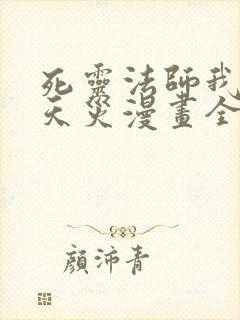 死靈法師我
天災漫畫全
顏沛青